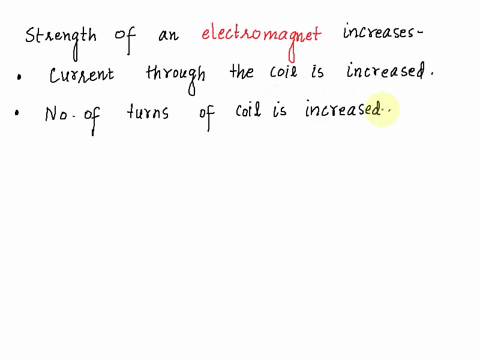 Strength of an electromagnet increases-
• Current through the coil is increased.
• No. of turns of coil is increased..